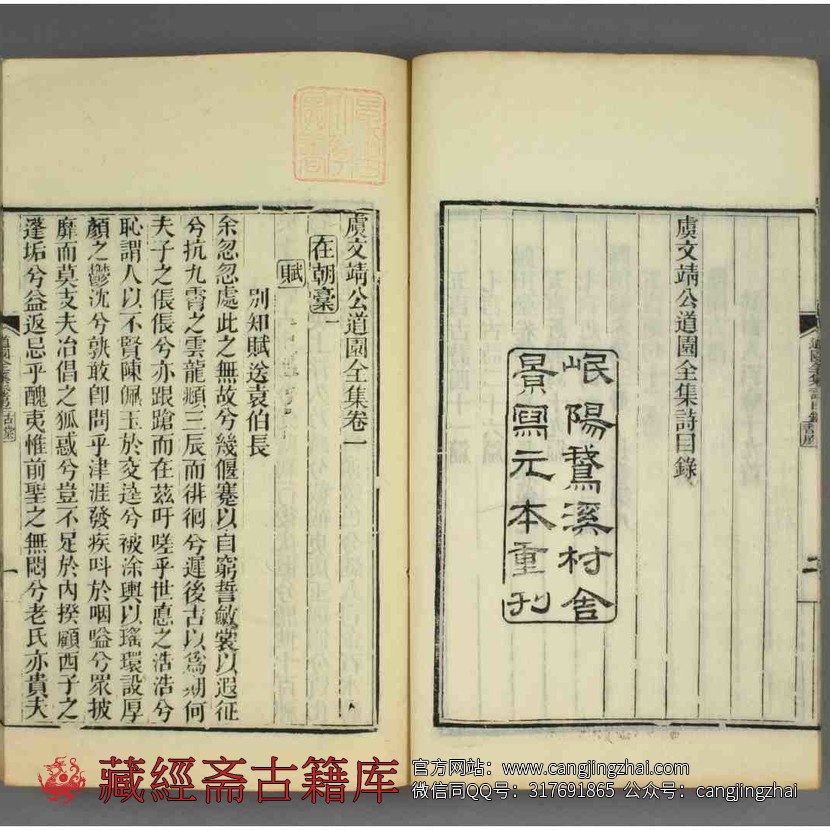 虞文靖公道園全集詩目錄
岷陽鵞溪村舍
景寫元本重刊
虞文靖公道園全集卷一
在朝稾一
賦
別知賦送袁伯長
余忽忽處此之無故兮幾偃蹇以自窮誓斂裳以遐征
兮抗九霄之雲龍頫三辰而徘徊兮遲後古以爲期何
夫子之倀倀兮亦踉蹌而在茲吁嗟乎世悳之浩浩兮
恥謂人以不賢陳佩玉於交逵兮被涂輿以瑤環設厚
顏之鬱沈兮孰敢卽問乎津涯發疾呌於咽嗌兮眾披
靡而莫支夫冶倡之狐惑兮豈不足於內揆顧西子之
蓬垢兮益返忌乎醜夷惟前聖之無悶兮老氏亦貴夫
藏經斋古籍库
官方网站：www.cangjingzhai.com
微信同QQ号：317691865 公众号：cangjingzhai